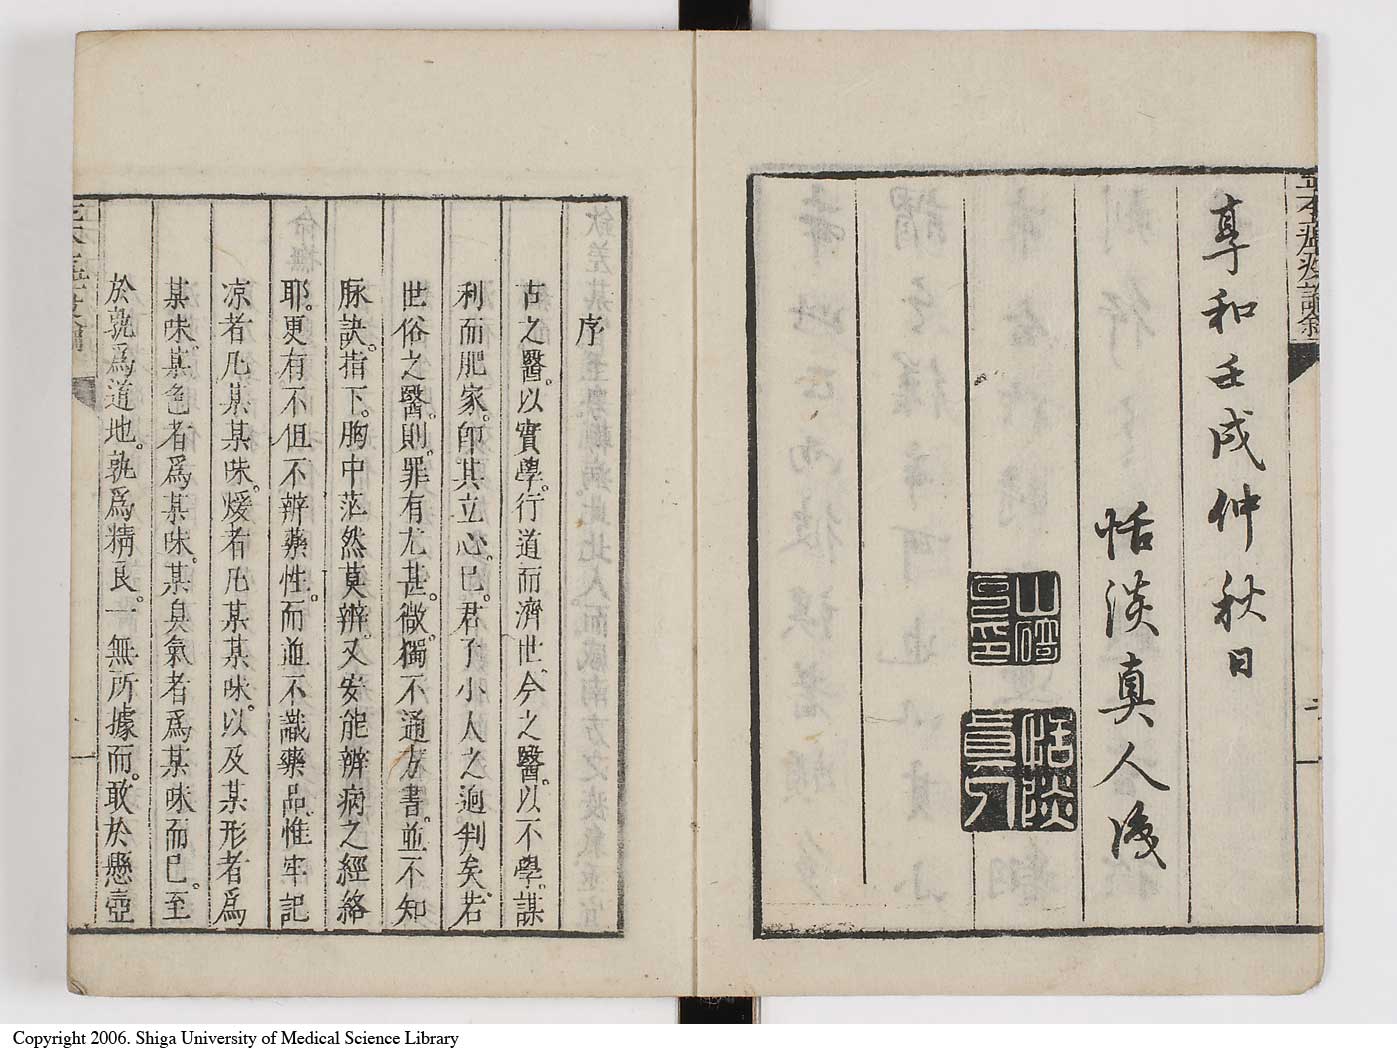 正本瘟疫論叙
享和壬戌仲秋日
恬淡真人
恬淡真人
序
古之醫。以實學。行道而濟世、今之醫。以不學。謀
利而肥家。卽其立心。已。君子小人之逈判矣。若
世俗之醫。則罪有尤甚。微獨不通方書。並不知
脉訣。指下。胸中茫然莫辨。又安能辨病之經絡
耶。更有不但不辨藥性。而並不識藥品。惟牢記
凉者凡某某味。煖者凡某某味。以及某形者爲
某味。某色者爲某味。某臭氣者爲某味而已。至
於孰爲道地。孰爲精良。一無所據而。敢於懸壺
一
Copyright 2006. Shiga University of Medical Science Library